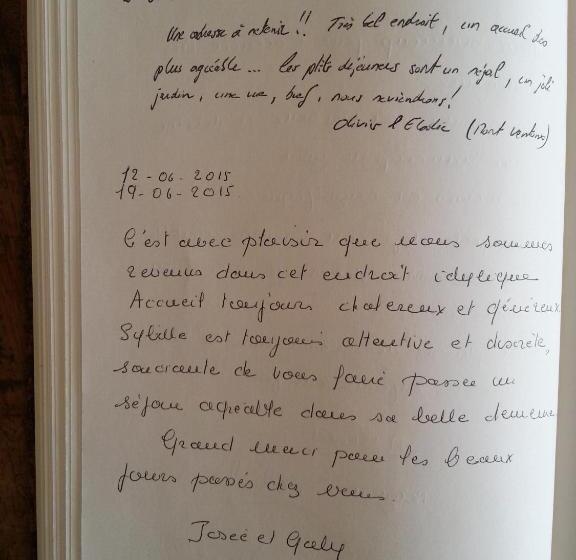 Une adresse à retenir !! Très bel endroit, un accueil des
plus agréable... les ptits déjeuners sont un régal, un joli
jardin, une vue, bref, nous reviendrons !
Olivier & Elodie (Mont ventoux)
12-06-2015
19-06-2015
C'est avec plaisir que nous sommes
revenus dans cet endroit idylique
Accueil toujours chalereux et généreux
Sybille est toujours attentive et discrète,
soucieuse de vous faire passer un
séjour agréable dans sa belle demeure
Grand merci pour les beaux
jours passés chez vous.
Josée et